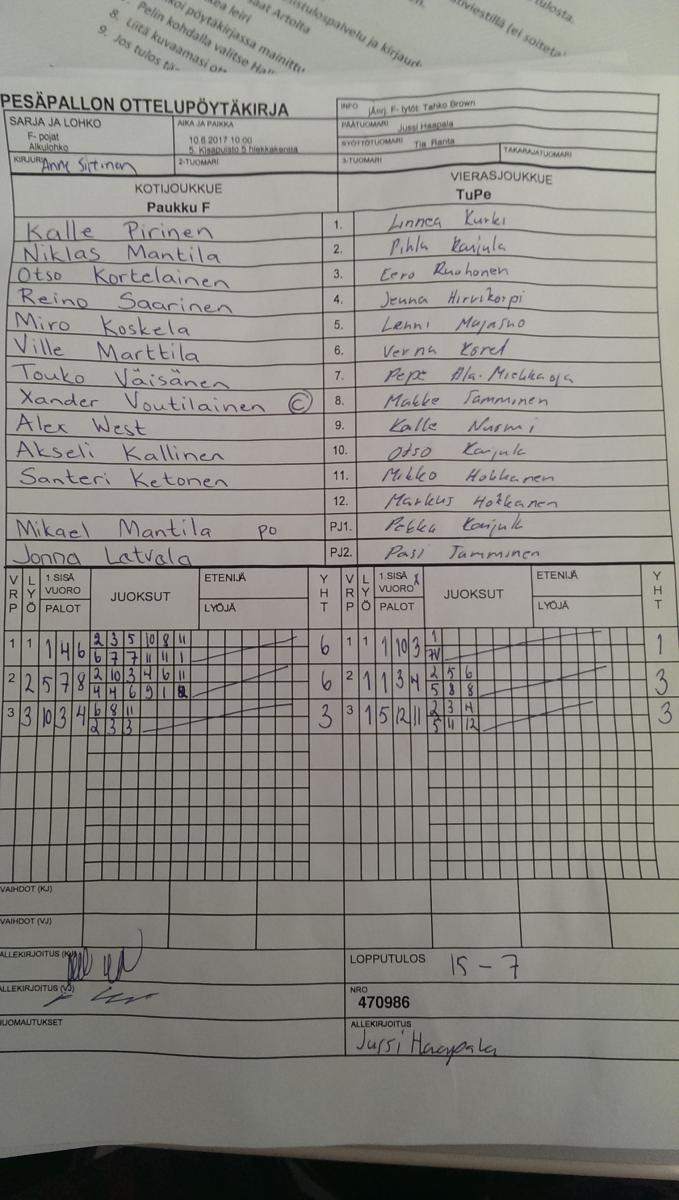 tulosta.
8. Pelin kohdalla valitse
9. Jos tulos
PESÄPALLON OTTELUPÖYTÄKIRJA
INFO jAvrj. F- tytöt: Tahko Brown
SARJA JA LOHKO
F- pojat
Alkulohko
AIKA JA PAIKKA
10.6.2017 10:00
PÄÄTUOMARI Jussi Haapala
SYÖTTÖTUOMARI Tia Ranta
KIRJURI Anne Siitinen
2-TUOMARI
3-TUOMARI
TAKARAJATUOMARI
KOTIJOUKKUE VIERASJOUKKUE
Paukku F TuPe
Kalle Pirinen 1. Linnea Kurki
Niklas Mantila 2. Pihla Karjula
Otso Kortelainen 3. Eero Ruohonen
Reino Saarinen 4. Jenna Hirvikorpi
Miro Koskela 5. Lenni
Ville Marttila 6. Verna
Touko Väisänen 7. Pepe Ala-Miekkaoja
Xander Voutilainen © 8. Makke Tamminen
Alex West 9. Kalle Nurmi
Akseli Kallinen 10. Otso Karjula
Santeri Ketonen 11. Mikko Hokkanen
12. Markus Hokkanen
Mikael Mantila PO PJ1. Pekka Karjula
Jonna Latvala PJ2. Pasi Tamminen
VRP LYÖ 1.SISÄ VUORO PALOT JUOKSUT ETENIJÄ LYÖJÄ YHT VRP LYÖ 1.SISÄ VUORO X PALOT JUOKSUT ETENIJÄ LYÖJÄ YHT
1 1 1 4 6 2 3 5 10 8 11 6 1 1 1 10 3 1 1
6 7 7 11 11 1
2 2 5 7 8 2 10 3 4 6 11 6 2 1 1 3 4 2 5 6 3
4 4 6 9 1 5 8 8
3 3 10 3 4 6 8 11 3 3 1 5 12 11 2 3 4 3
2 3 3 5 11 12
VAIHDOT (KJ)
VAIHDOT (VJ)
ALLEKIRJOITUS (KJ)
LOPPUTULOS 15 - 7
ALLEKIRJOITUS (VJ)
NRO
470986
HUOMAUTUKSET
ALLEKIRJOITUS
Jussi Haapala